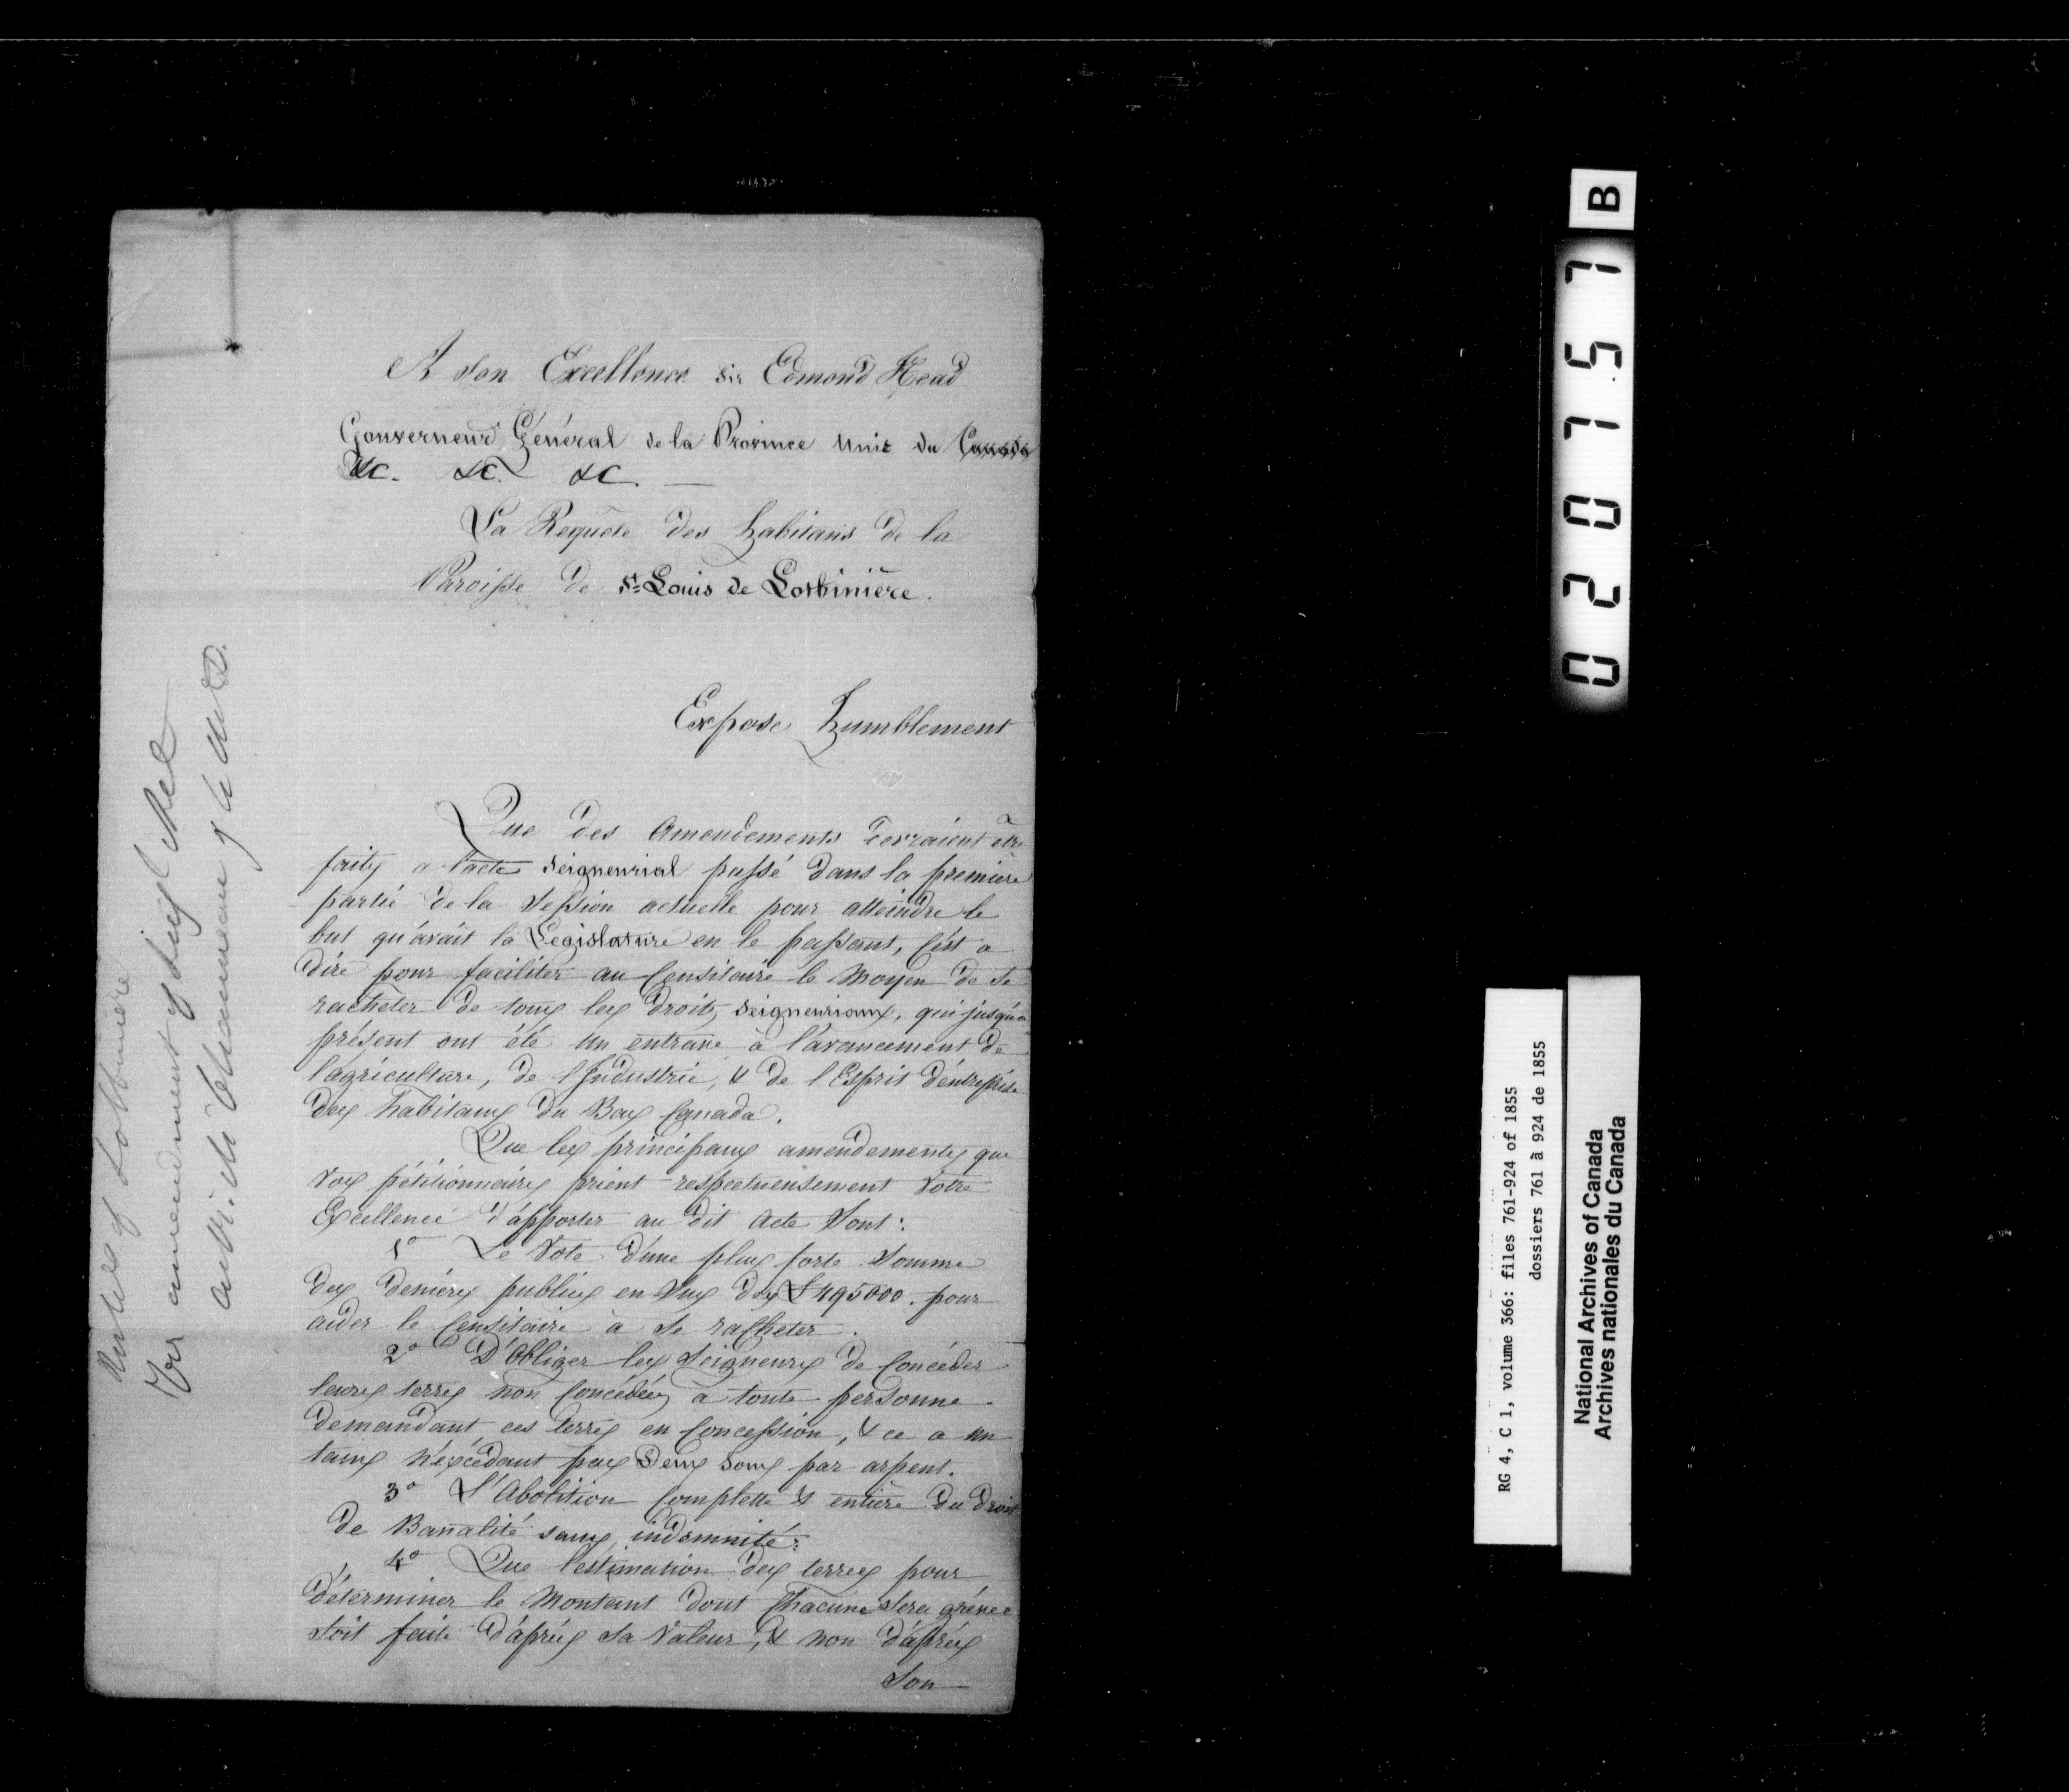 A Son Excellence Sir Edmond Head
Gouverneur Général de la Province Unie du Canada
&c. &c. &c. —
La Requête des habitans de la
Paroisse de St Louis de Lotbinière.
Expose humblement
Que des Amendements devraient être
faits a l'acte Seigneurial passé dans la première
partie de la Session actuelle pour atteindre le
but qu'avait la Legislature en le passant, C'est a
dire pour faciliter au Censitaire le moyen de se
racheter de tous les droits Seigneuriaux, qui jusqu'a
présent ont été un entrave à l'avancement de
l'agriculture, de l'Industrie, & de l'Esprit d'entreprise
des habitans du Bas Canada.
Que les principaux amendements que
Vos pétitionnaires prient respectueusement Votre
Excellence d'apporter au dit Acte Sont:
1o Le Vote d'une plus forte Somme
des deniers publics en Sus des £495000. pour
aider le Censitaire à se racheter.
2o D'Obliger les Seigneurs de Concéder
leurs terres non Concédées à toute personne
demandant ces terres en Concession, & ce a un
taux n'éxcédant pas Deux Sous par arpent.
3o L'Abolition Complette & entière du droit
de Banalité sans indemnité.
4o Que l'estimation des terres pour
déterminer le Montant dont Chacune Sera grévée
soit faite d'après sa Valeur, & non d'après
Son
of Lotbiniere
For amendment of Seigl Act
B
020157
RG 4, C 1, volume 366: files 761-924 of 1855
dossiers 761 à 924 de 1855
National Archives of Canada
Archives nationales du Canada